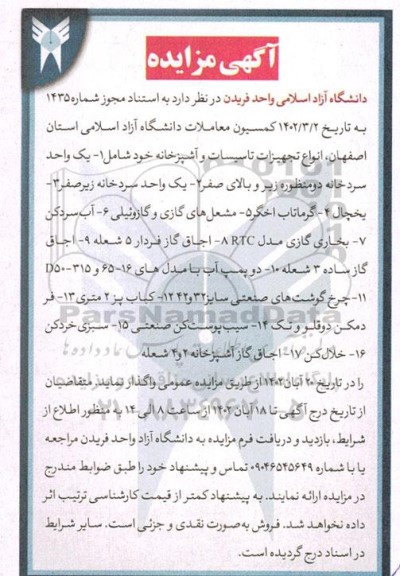 آگهی مزایده
دانشگاه آزاد اسلامی واحد فریدن در نظر دارد به استناد مجوز شماره ۱۴۳۵
به تاریخ ۱۴۰۲/۳/۲ کمسیون معاملات دانشگاه آزاد اسلامی استان
اصفهان، انواع تجهیزات تاسیسات و آشپزخانه خود شامل ۱- یک واحد
سردخانه دومنظوره زیر و بالای صفر ۲- یک واحد سردخانه زیرصفر ۳-
یخچال ۴- گرماتاب اخگر ۵- مشعل‌های گازی و گازوئیلی ۶- آب سردکن
۷- بخاری گازی مدل RTC ۸- اجاق گاز فردار ۵ شعله ۹- اجاق
گاز ساده ۳ شعله ۱۰- دو پمپ آب با مدل های ۱۶-۶۵ و ۳۱۵-D۵۰
۱۱- چرخ گوشت‌های صنعتی سایز ۳۲و۴۲ ۱۲- کباب پز ۲ متری ۱۳- فر
دمکن دوقلو و تک ۱۴- سیب پوست‌کن صنعتی ۱۵- سبزی خردکن
۱۶- خلال‌کن ۱۷- اجاق گاز آشپزخانه ۲و۴ شعله
را در تاریخ ۲۰ آبان ۱۴۰۲ از طریق مزایده عمومی واگذار نماید متقاضیان
از تاریخ درج آگهی تا ۱۸ آبان ۱۴۰۲ از ساعت ۸ الی ۱۴ به منظور اطلاع از
شرایط، بازدید و دریافت فرم مزایده به دانشگاه آزاد واحد فریدن مراجعه
یا با شماره ۰۹۰۴۶۵۴۵۶۴۹ تماس و پیشنهاد خود را طبق ضوابط مندرج
در مزایده ارائه نمایند. به پیشنهاد کمتر از قیمت کارشناسی ترتیب اثر
داده نخواهد شد. فروش به‌صورت نقدی و جزئی است. سایر شرایط
در اسناد درج گردیده است.
ParsNamadData